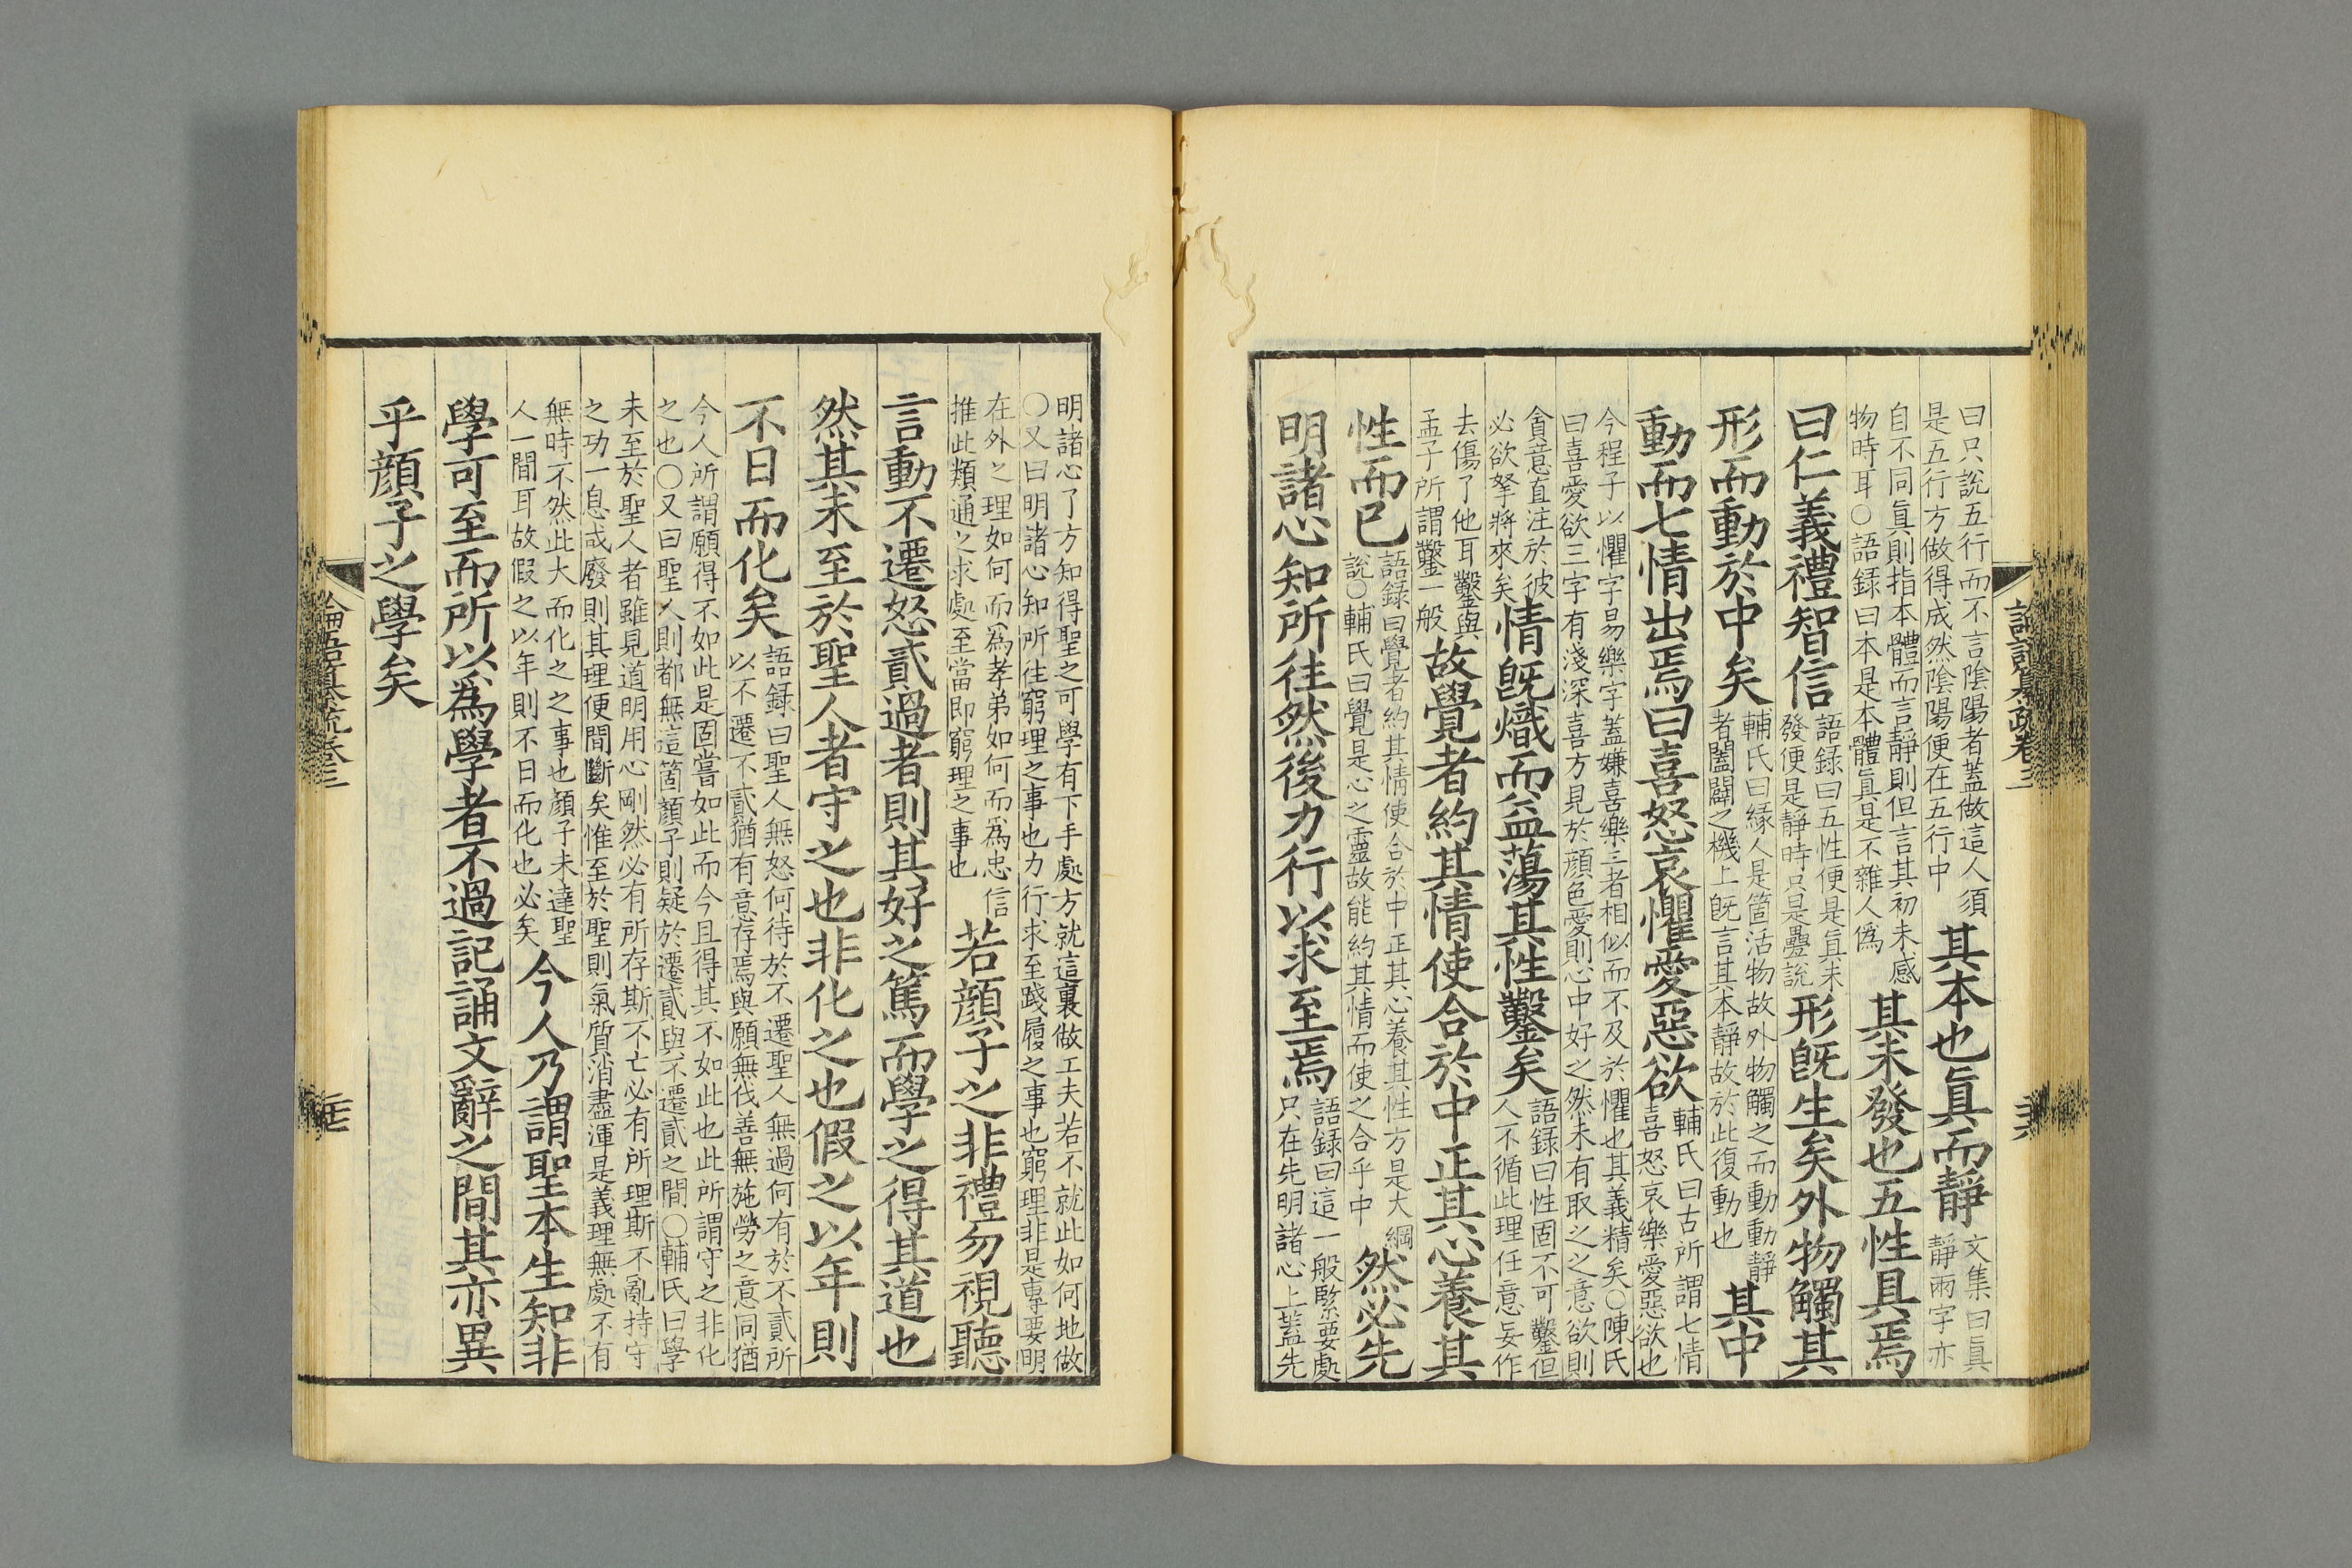 曰只說五行而不言陰陽者蓋做這人須
是五行方做得成然陰陽便在五行中
其本也眞而靜
文集曰眞
靜兩字亦
自不同眞則指本體而言靜則但言其初未感
物時耳○語録曰本是本體眞是不雜人僞
其未發也五性具焉
曰仁義禮智信
語録曰五性便是眞未
發便是靜時只是疊說
形旣生矣外物觸其
形而動於中矣
輔氏曰緣人是箇活物故外物觸之而動動靜
者闔闢之機上旣言其本靜故於此復動也
其中
動而七情出焉曰喜怒哀懼愛惡欲
輔氏曰古所謂七情
喜怒哀樂愛惡欲也
今程子以懼字易樂字蓋嫌喜樂三者相似而不及於懼也其義精矣○陳氏
曰喜愛欲三字有淺深喜方見於顔色愛則心中好之然未有取之之意欲則
貪意直注於彼
必欲拏將來矣
情旣熾而益蕩其性鑿矣
語録曰性固不可鑿但
人不循此理任意妄作
去傷了他耳鑿與
孟子所謂鑿一般
故覺者約其情使合於中正其心養其
性而已
語録曰覺者約其情使合於中正其心養其性方是大綱
說○輔氏曰覺是心之靈故能約其情而使之合乎中
然必先
明諸心知所往然後力行以求至焉
語録曰這一般緊要處
只在先明諸心上蓋先
論語纂疏卷三
明諸心了方知得聖之可學有下手處方就這裏做工夫若不就此如何地做
○又曰明諸心知所往窮理之事也力行求至踐履之事也窮理非是專要明
在外之理如何而爲孝弟如何而爲忠信
推此類通之求處至當即窮理之事也
若顔子之非禮勿視聽
言動不遷怒貳過者則其好之篤而學之得其道也
然其未至於聖人者守之也非化之也假之以年則
不日而化矣
語録曰聖人無怒何待於不遷聖人無過何有於不貳所
以不遷不貳猶有意存焉與願無伐善無施勞之意同猶
今人所謂願得不如此是固嘗如此而今且得其不如此也此所謂守之非化
之也○又曰聖人則都無這箇顔子則疑於遷貳與不遷貳之間○輔氏曰學
未至於聖人者雖見道明用心剛然必有所存斯不亡必有所理斯不亂持守
之功一息或廢則其理便間斷矣惟至於聖則氣質消盡渾是義理無處不有
無時不然此大而化之之事也顔子未達聖
人一間耳故假之以年則不日而化也必矣
今人乃謂聖本生知非
學可至而所以爲學者不過記誦文辭之間其亦異
乎顔子之學矣
論語纂疏卷三